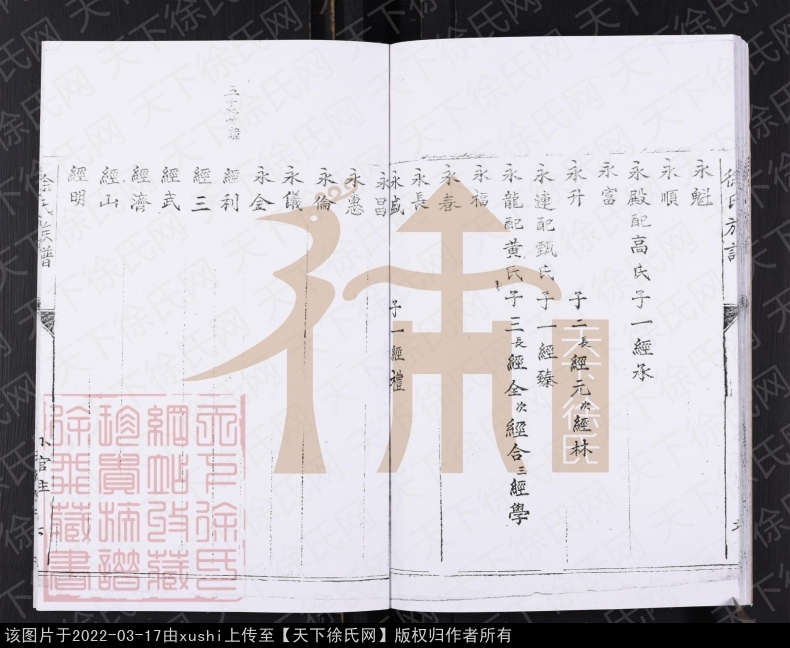 徐氏族譜
永魁
永順
永殿配高氏子一經承
永富
永升 子二長經元次經林
永連配甄氏子一經臻
永龍配黄氏子三長經全次經合三經學
永福
永春
永長
永盛 子一經禮
永昌
永惠
永倫
永儀
永金
經利
經三
經武
經濟
經山
經明
徐氏族譜
天下徐氏网
天下徐氏
该图片于2022-03-17由xushi上传至【天下徐氏网】版权归作者所有